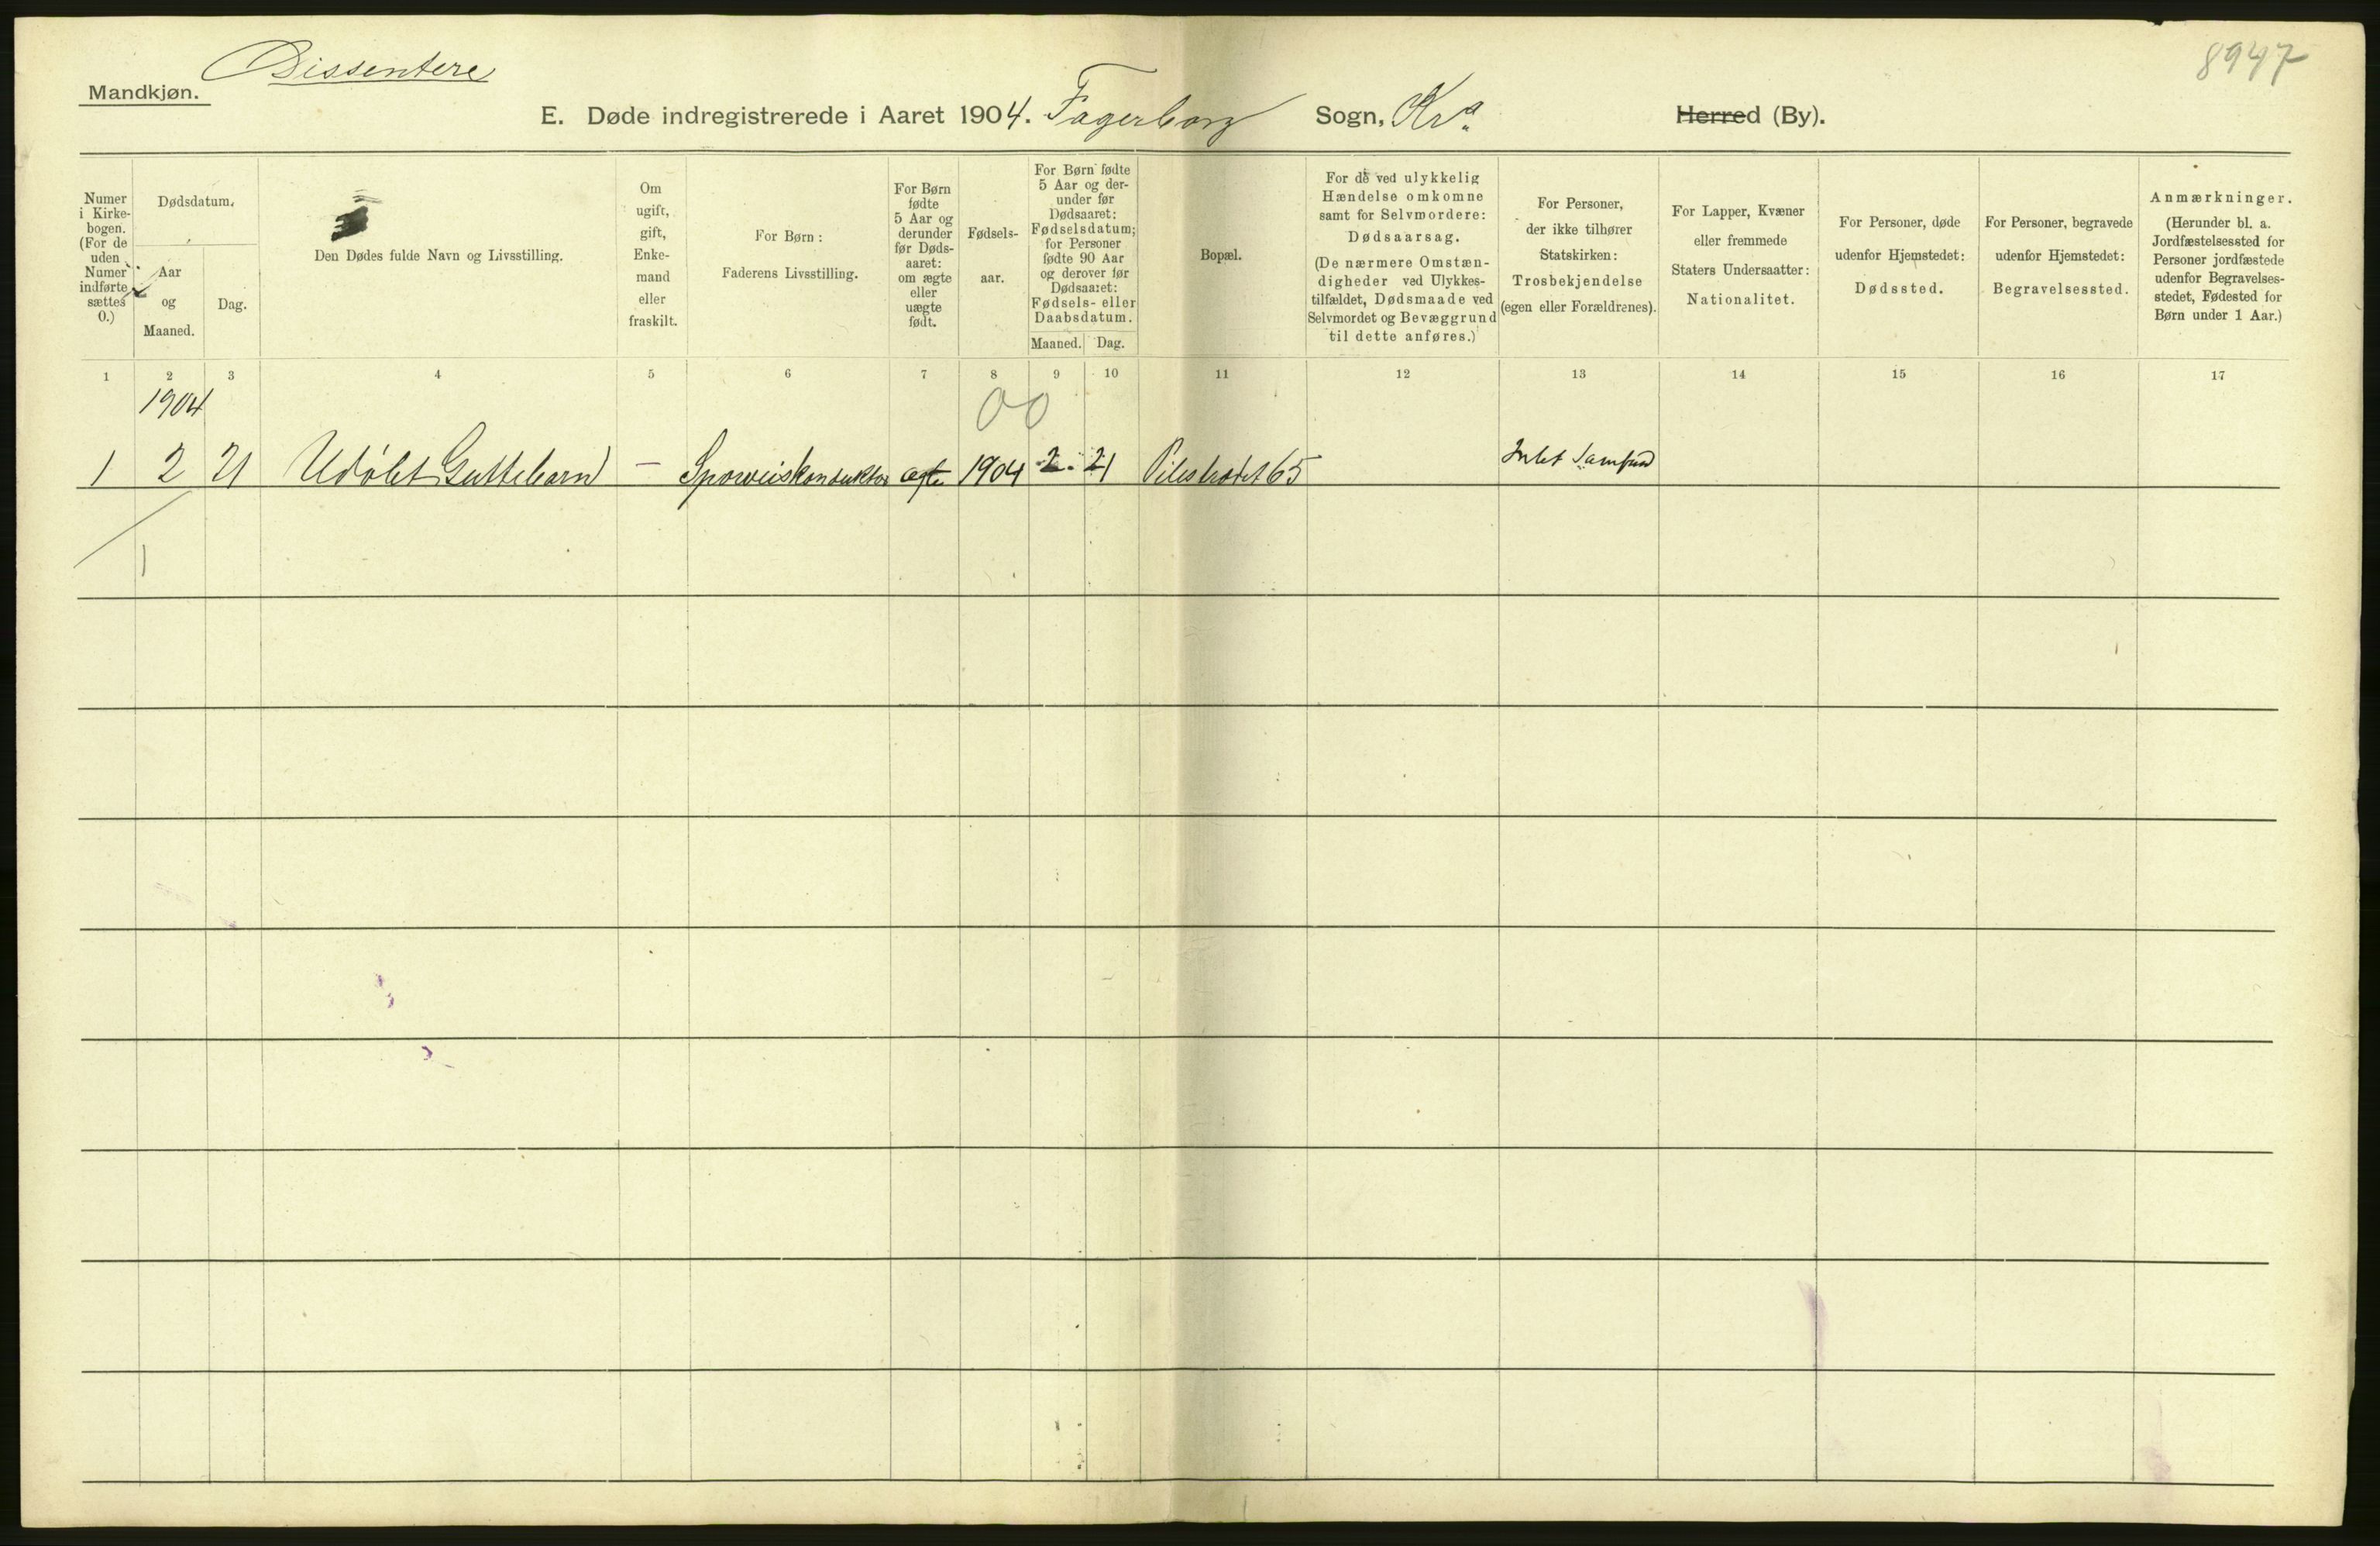 8947
Dissentere
Mandkjøn.
E. Døde indregistrerede i Aaret 1904. Fagerborg Sogn, Kra. Herred (By).
Numer i Kirkebogen. (For de uden Numer indførte sættes 0.)
Dødsdatum.
Aar og Maaned.
Dag.
Den Dødes fulde Navn og Livsstilling.
Om ugift, gift, Enkemand eller fraskilt.
For Børn: Faderens Livsstilling.
For Børn fødte 5 Aar og derunder før Dødsaaret: om ægte eller uægte født.
Fødselsaar.
For Børn fødte 5 Aar og derunder før Dødsaaret: Fødselsdatum; for Personer fødte 90 Aar og derover før Dødsaaret: Fødsels- eller Daabsdatum.
Maaned. Dag.
Bopæl.
For de ved ulykkelig Hændelse omkomne samt for Selvmordere: Dødsaarsag. (De nærmere Omstændigheder ved Ulykkestilfældet, Dødsmaade ved Selvmordet og Bevæggrund til dette anføres.)
For Personer, der ikke tilhører Statskirken: Trosbekjendelse (egen eller Forældrenes).
For Lapper, Kvæner eller fremmede Staters Undersaatter: Nationalitet.
For Personer, døde udenfor Hjemstedet: Dødssted.
For Personer, begravede udenfor Hjemstedet: Begravelsessted.
Anmærkninger. (Herunder bl. a. Jordfæstelsessted for Personer jordfæstede udenfor Begravelsesstedet, Fødested for Børn under 1 Aar.)
1 2 3 4 5 6 7 8 9 10 11 12 13 14 15 16 17
1904 00
1 2 21 Udøbt Guttebarn — Sporveiskonduktør ægte 1904 2. 21 Pilestrædet 65 Intet Samfund
1